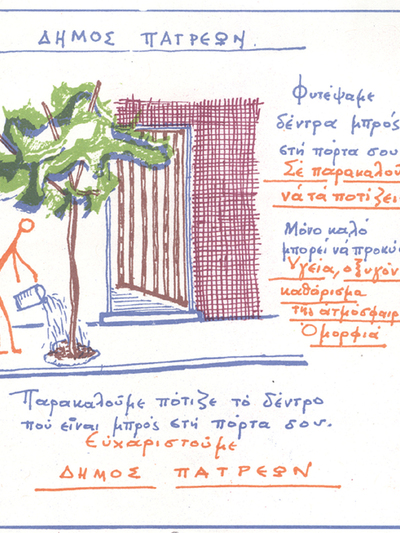 ΔΗΜΟΣ ΠΑΤΡΕΩΝ.
Φυτέψαμε
δέντρα μπρός
στή πόρτα σου
Σέ παρακαλού
νά τά ποτίζει
Μόνο καλό
μπορεί νά προκύ
Ὑγεία, οξυγόν
καθάρισμα
τής ατμόσφαιρ
Ὀμορφιά
Παρακαλούμε πότιζε τό δέντρο
πού είναι μπρός στή πόρτα σου.
Εὐχαριστούμε
ΔΗΜΟΣ ΠΑΤΡΕΩΝ